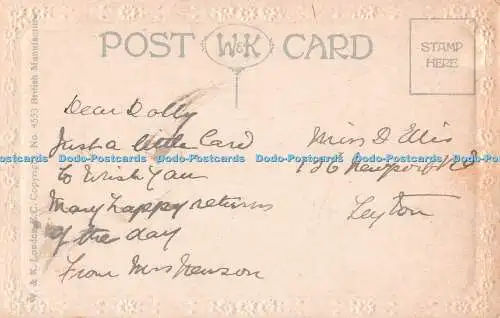 POST W&K CARD
STAMP
HERE
W. & K. London, E.C. Copyright No. 4553 British Manufacture
Dear Dolly
Just a little Card
to Wish You
Many happy returns
of the day
From Mrs Newson
Miss D Ellis
126 Newport Rd
Leyton
Dodo-Postcards Dodo-Postcards Dodo-Postcards Dodo-Postcards Dodo-Postcards